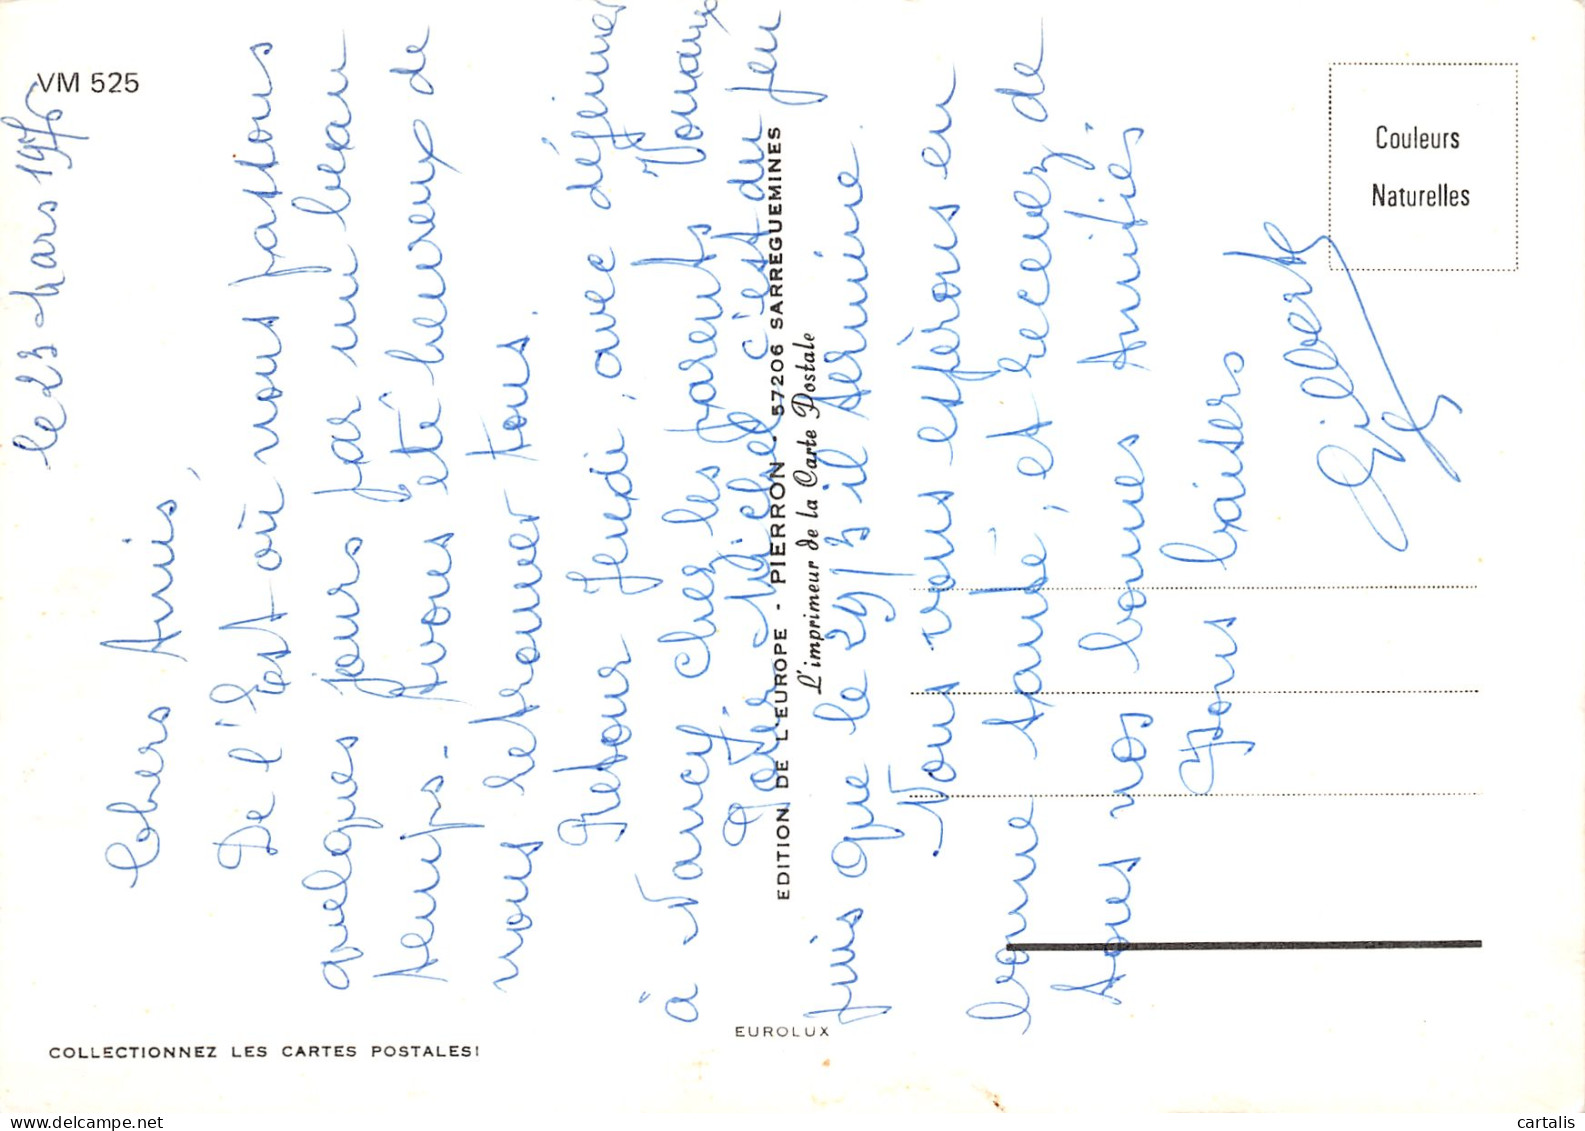 VM 525
le 23 Mars 1976
Chers Amis,
De l'Est où nous passons
quelques jours par un beau
temps - Avons été heureux de
vous retrouver tous.
Retour Jeudi, avec déjeuner
à Nancy chez les parents
Loïc Michel c'est du feu
puis que le 29/3 il termine
Nous vous espérons en
bonne santé, et recevez de
tous nos bonnes Amitiés
Gros baisers
Gilberte
Couleurs
Naturelles
EDITION DE L'EUROPE - PIERRON - 57206 SARREGUEMINES
L'imprimeur de la Carte Postale
EUROLUX
COLLECTIONNEZ LES CARTES POSTALES!
www.delcampe.net
cartalis